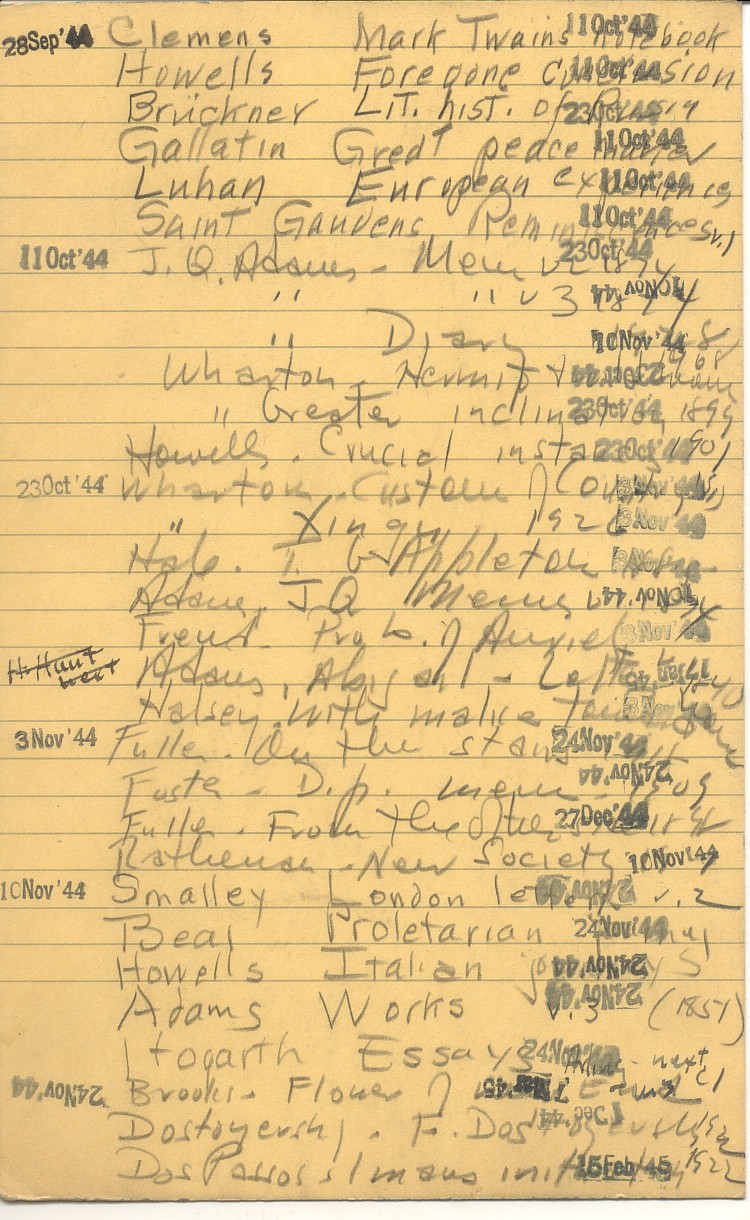 28 Sep '44 Clemens Mark Twain's notebook 11 Oct '44
Howells Foregone conclusion 11 Oct '44
Brückner Lit. hist. of Russia 23 Oct '44
Gallatin Great peace maker 11 Oct '44
Luhan European experiences 11 Oct '44
Saint Gaudens Reminiscences v.1 11 Oct '44
11 Oct '44 J. Q. Adams - Mem v 2 1874 23 Oct '44
" " v 3 1874 10 Nov '44
" Diary 1928 10 Nov '44
Wharton - Hermit + 23 Oct '44
" Greater inclination 1899 23 Oct '44
Howells - Crucial instances 1901 23 Oct '44
23 Oct '44 Wharton - Custom of Country 3 Nov '44
" Xingu 3 Nov '44
Hale. T. G. Appleton 3 Nov '44
Adams, J Q Mem 10 Nov '44
Freud - Prob. of Anxiety 3 Nov '44
H. Hunt next Adams, Abigail - Letters 1840
Halsey. With malice toward some 3 Nov
3 Nov '44 Fuller - On the stairs 24 Nov '44
Foster - D.p. mem 1909 24 Nov '44
Fuller - From the Other Side 27 Dec '44
Rathenau - New Society 10 Nov '44
10 Nov '44 Smalley London letters v. 2 24 Nov '44
Beal Proletarian journey 24 Nov '44
Howells Italian journeys 24 Nov '44
Adams Works v.3 (1851) 24 Nov '44
Hogarth Essays 24 Nov '44
24 Nov '44 Brooks - Flower of N. Eng next
Dostoyevsky - F. Dostoyevsky 1 Dec '44
Dos Passos 1 man's initiation 1922 15 Feb '45